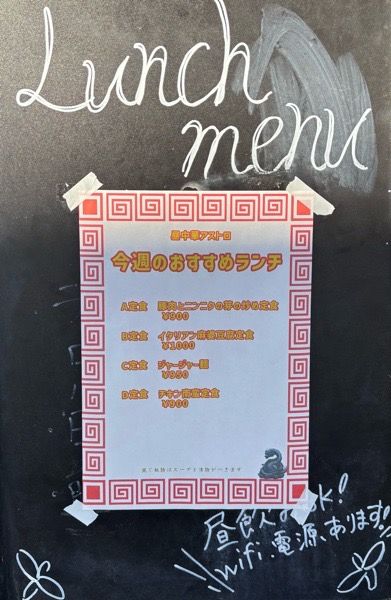 Lunch
menu
昼中華アストロ
今週のおすすめランチ
A定食 豚肉とニンニクの芽の炒め定食
¥900
B定食 イタリアン麻婆豆腐定食
¥1000
C定食 ジャージャー麺
¥950
D定食 チキン南蛮定食
¥900
スープと漬物がつきます
昼飲みok!
wifi、電源、あります!